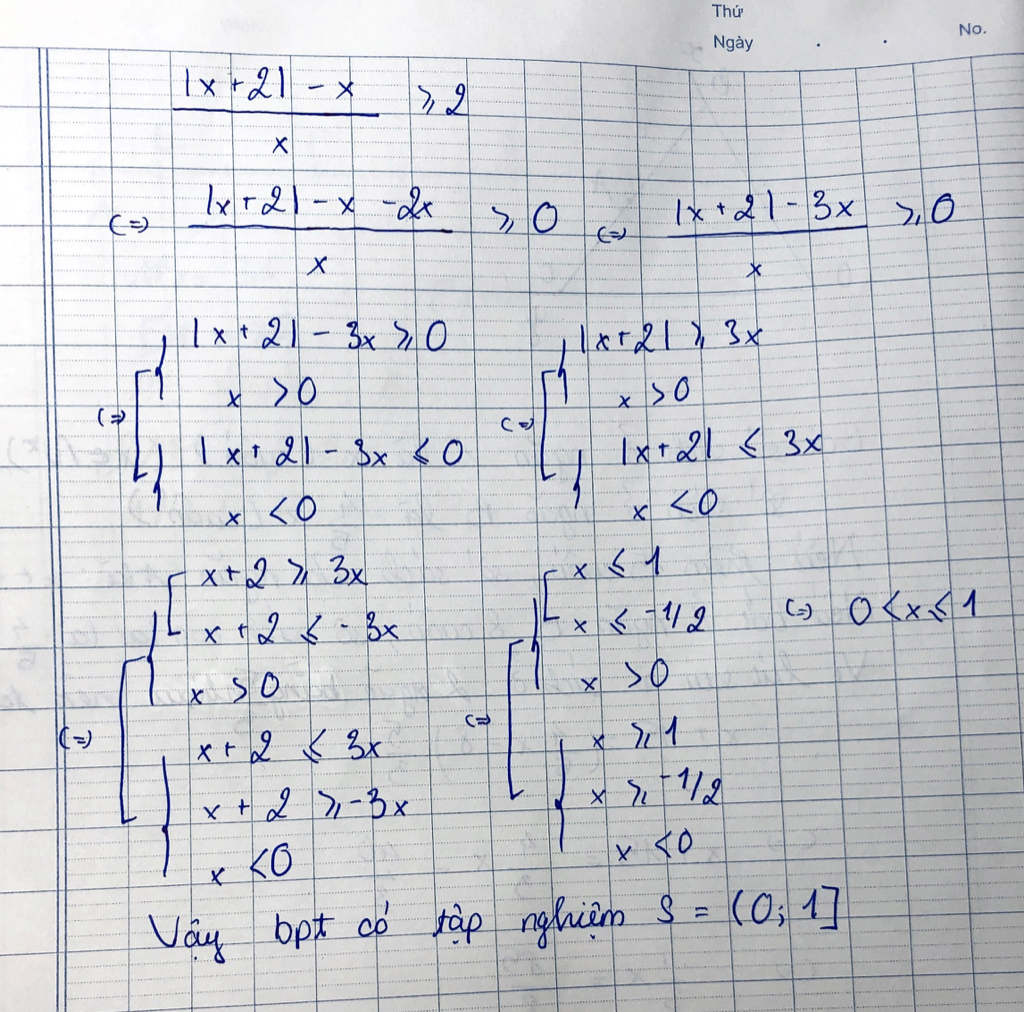 Thứ
Ngày . . No.
|x+2| - x / x ≥ 2
(=) |x+2| - x - 2x / x ≥ 0 (=) |x+2| - 3x / x ≥ 0
(=) [ { |x+2| - 3x ≥ 0 (=) [ { |x+2| ≥ 3x
x > 0 x > 0
{ |x+2| - 3x ≤ 0 { |x+2| ≤ 3x
x < 0 x < 0
(=) [ { [ x+2 ≥ 3x (=) [ { [ x ≤ 1
x+2 ≤ -3x x ≤ -1/2 (=) 0 < x ≤ 1
x > 0 x > 0
{ x+2 ≤ 3x { x ≥ 1
x+2 ≥ -3x x ≥ -1/2
x < 0 x < 0
Vậy bpt có tập nghiệm S = (0; 1]